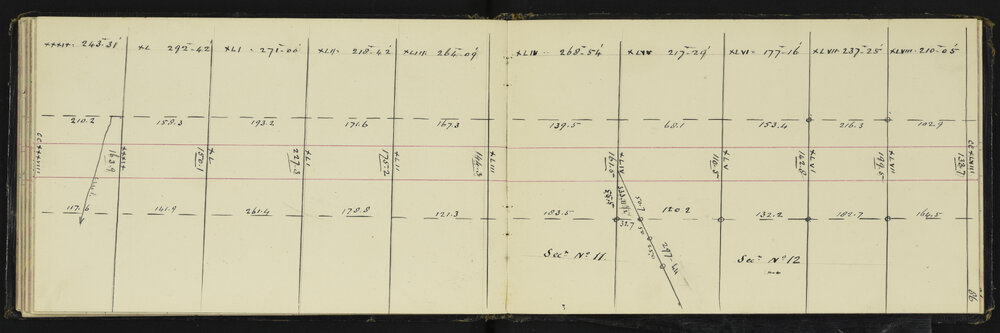 XXXIX· 243°-31' XL 292-42' XLI - 271-00' XLII- 218-42' XLIII 264-09' XLIV - 268-54' XLV 217-29' XLVI - 177-16' XLVII-237-25 XLVIII-210-05'
210.2 158.3 193.2 171.6 167.3 139.5 68.1 153.4 216.3 102.9
CCXXXVIII XXXIX 163.9 XL 150.1 XLI 227.3 XLII 175.2 XLIII 144.3 XLIV 161.5 XLV 110.5 XLVI 142.8 XLVII 149.5 CCXLVIII 138.7
117.6 141.9 261.4 178.8 121.3 183.5 120.2 132.2 182.7 164.5
32.7
297
Secn No 11. Secn No 12
86